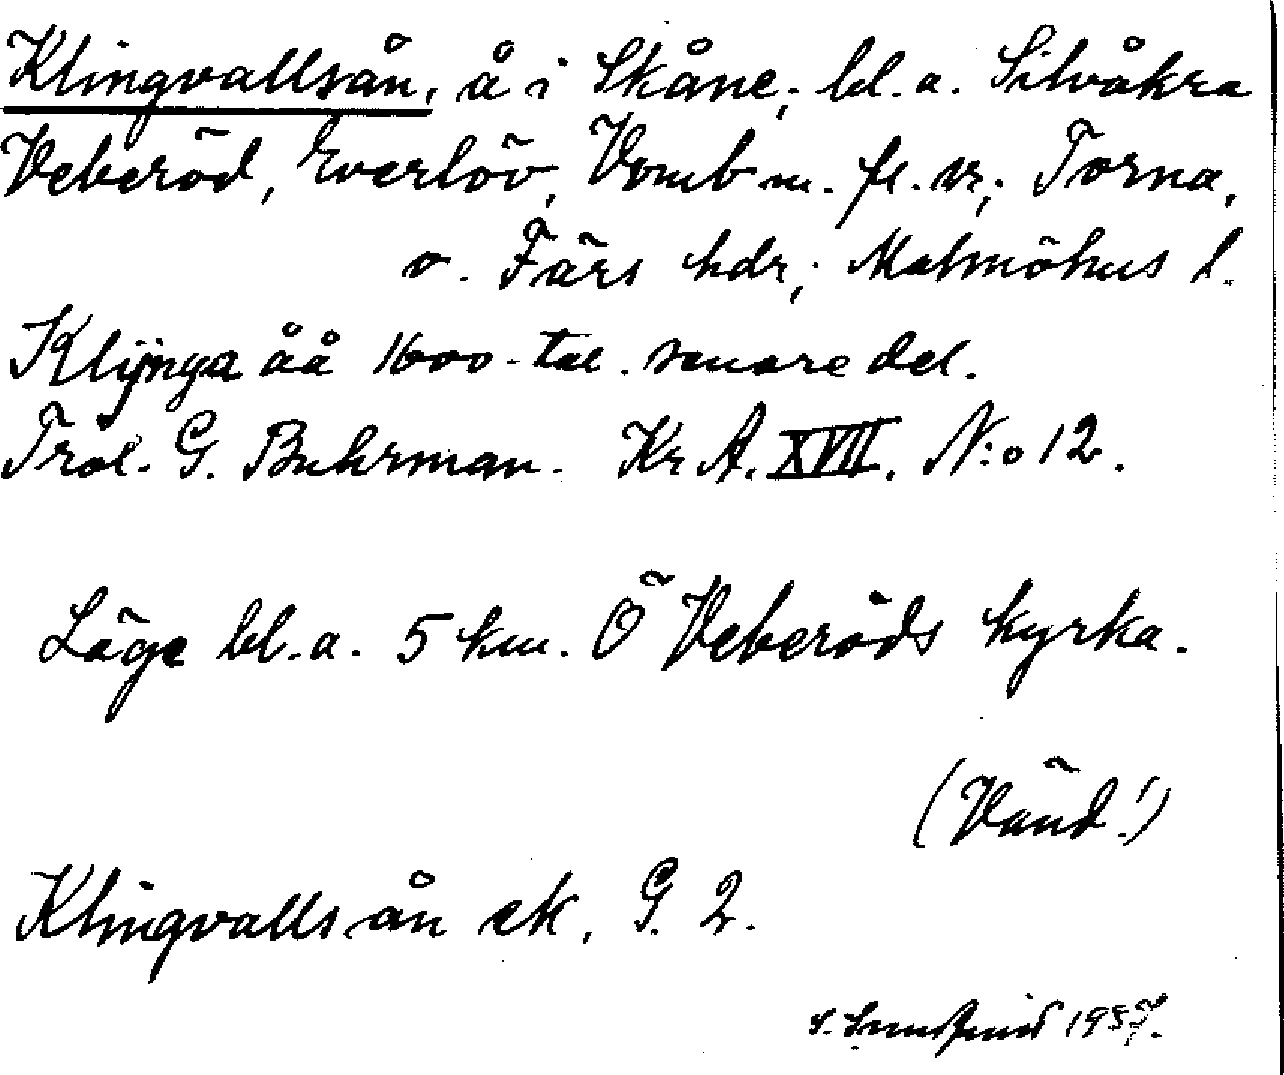 Klingvallsån, å i Skåne; bl. a. Silvåkra
Veberöd, Everlöv, Vomb m. fl. sr; Torna,
o. Färs hdr; Malmöhus l.
Klijnga åå 1600-tal. senare del.
Trol. G. Buhrman. Kr A. XVII. N:o 12.
Läge bl. a. 5 km. Ö Veberöds kyrka.
(Vänd!)
Klingvallsån ek. G. 2.
1937.